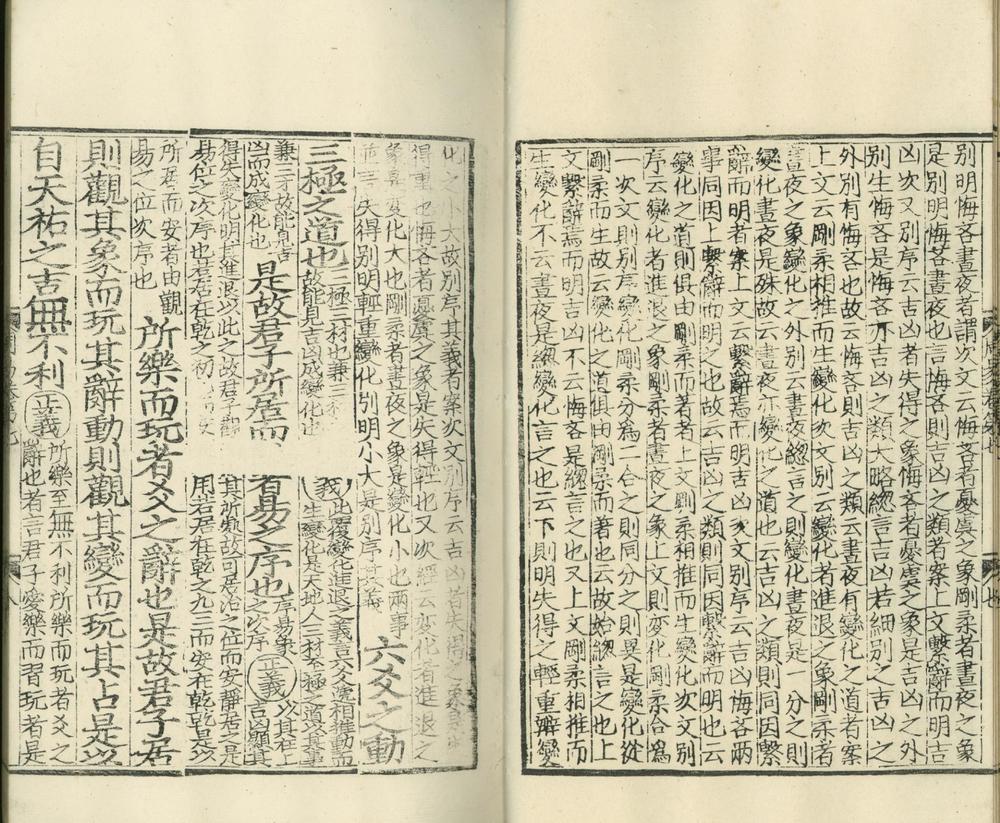 別明悔吝晝夜者謂次文云悔吝者憂虞之象剛柔者晝夜之象
是別明悔吝晝夜也言悔吝則吉凶之類者案上文繫辭而明吉
凶次又別序云吉凶者失得之象悔吝者憂虞之象是吉凶之外
別生悔吝是悔吝亦吉凶之類大略緫言吉凶若細別之吉凶之
外別有悔吝也故云悔吝則吉凶之類云晝夜有變化之道者案
上文云剛柔相推而生變化次文別云變化者進退之象剛柔者
晝夜之象變化之外別云晝夜緫言之則變化晝夜是一分之則
變化晝夜是殊故云晝夜亦變化之道也云吉凶之類則同因繫
辭而明者案上文云繫辭焉而明吉凶次文別序云吉凶悔吝兩
事同因上繫辭而明之也故云吉凶之類則同因繫辭而明也云
變化之道則俱由剛柔而著者上文剛柔相推而生變化次文別
序云變化者進退之象剛柔者晝夜之象上文則變化剛柔合爲
一次文則別序變化剛柔分爲二合之則同分之則異是變化從
剛柔而生故云變化之道俱由剛柔而著也云故始緫言之也上
文繫辭焉而明吉凶不云悔吝是緫言之也又上文剛柔相推而
生變化不云晝夜是緫變化言之也云下則明失得之輕重辯變
化之小大故別序其義者案次文別序云吉凶者失得之象是失
得重也悔吝者憂虞之象是失得輕也又次經云變化者進退之
象是變化大也剛柔者晝夜之象是變化小也兩事
並言失得別明輕重變化別明小大是別序其義 六爻之動
三極之道也 三極三材也兼三材
故能見吉凶成變化也
義 此覆變化進退之義言六爻遞相推動而
生變化是天地人三材至極之道以其事
兼三才故能見吉
凶而成變化也 是故君子所居而
安者易之序也 序易象
之次序 正義 以其在
吉凶顯其
得失變化明其進退以此之故君子觀
其所處故可居治之位而安靜居之是
易位之次序也若居在乾之初
用若居在乾之九三而安在乾乾是以
所居而安者由觀
易之位次序也 所樂而玩者爻之辭也是故君子居
則觀其象而玩其辭動則觀其變而玩其占是以
自天祐之吉無不利 正義 所樂至無不利所樂而玩者爻之
辭也者言君子愛樂而習玩者是